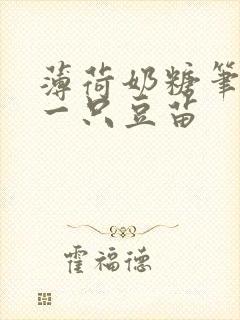 薄荷奶糖笔
一只豆苗
霍福德